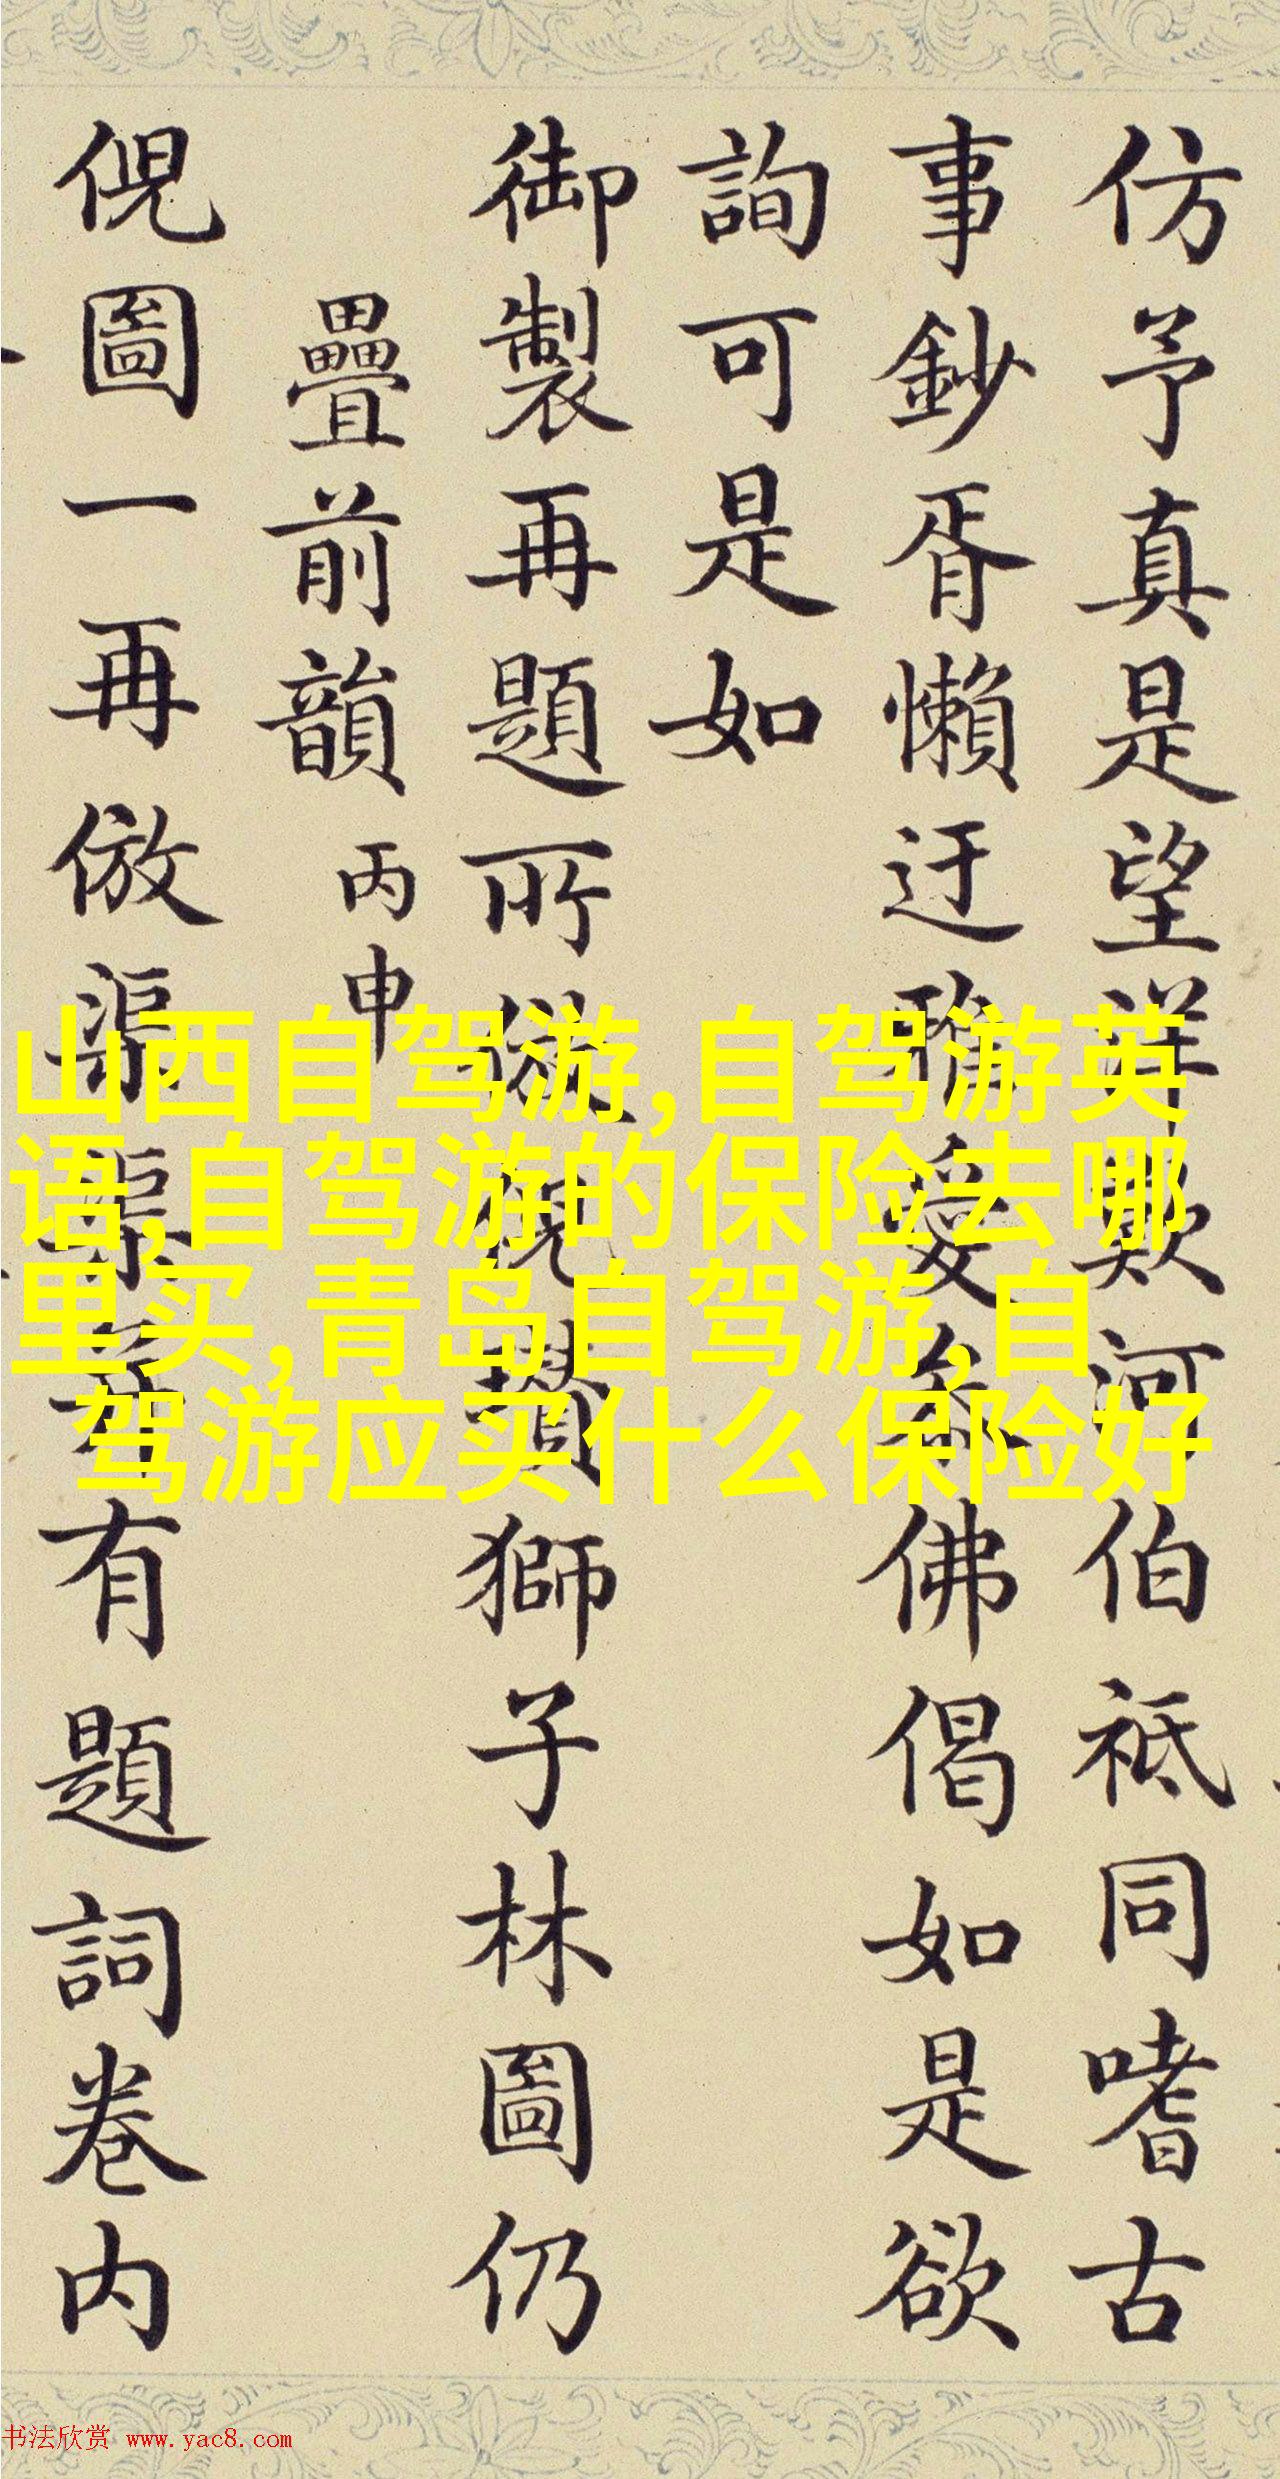 仿予真是望洋歎河伯祗同嗜古
事鈔胥懶迂雅愛參佛偈如是欲
詢可是如
御製再題所倣倪瓚獅子林圖仍
疊前韻 丙申
倪圖一再倣渠渠有題詞卷内
山西自驾游,自驾游英
语,自驾游的保险去哪
里买,青岛自驾游,自
驾游应买什么保险好
书法欣赏 www.yac8.com